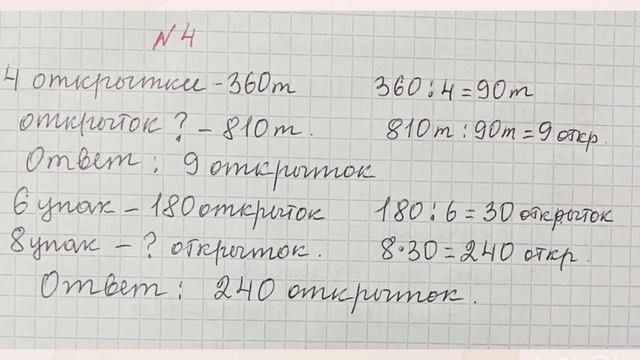 N 4
4 открытки - 360т 360 : 4 = 90т
открыток ? - 810т. 810т : 90т = 9 откр.
Ответ : 9 открыток
6 упак - 180 открыток 180 : 6 = 30 открыток
8 упак - ? открыток. 8 · 30 = 240 откр.
Ответ : 240 открыток.